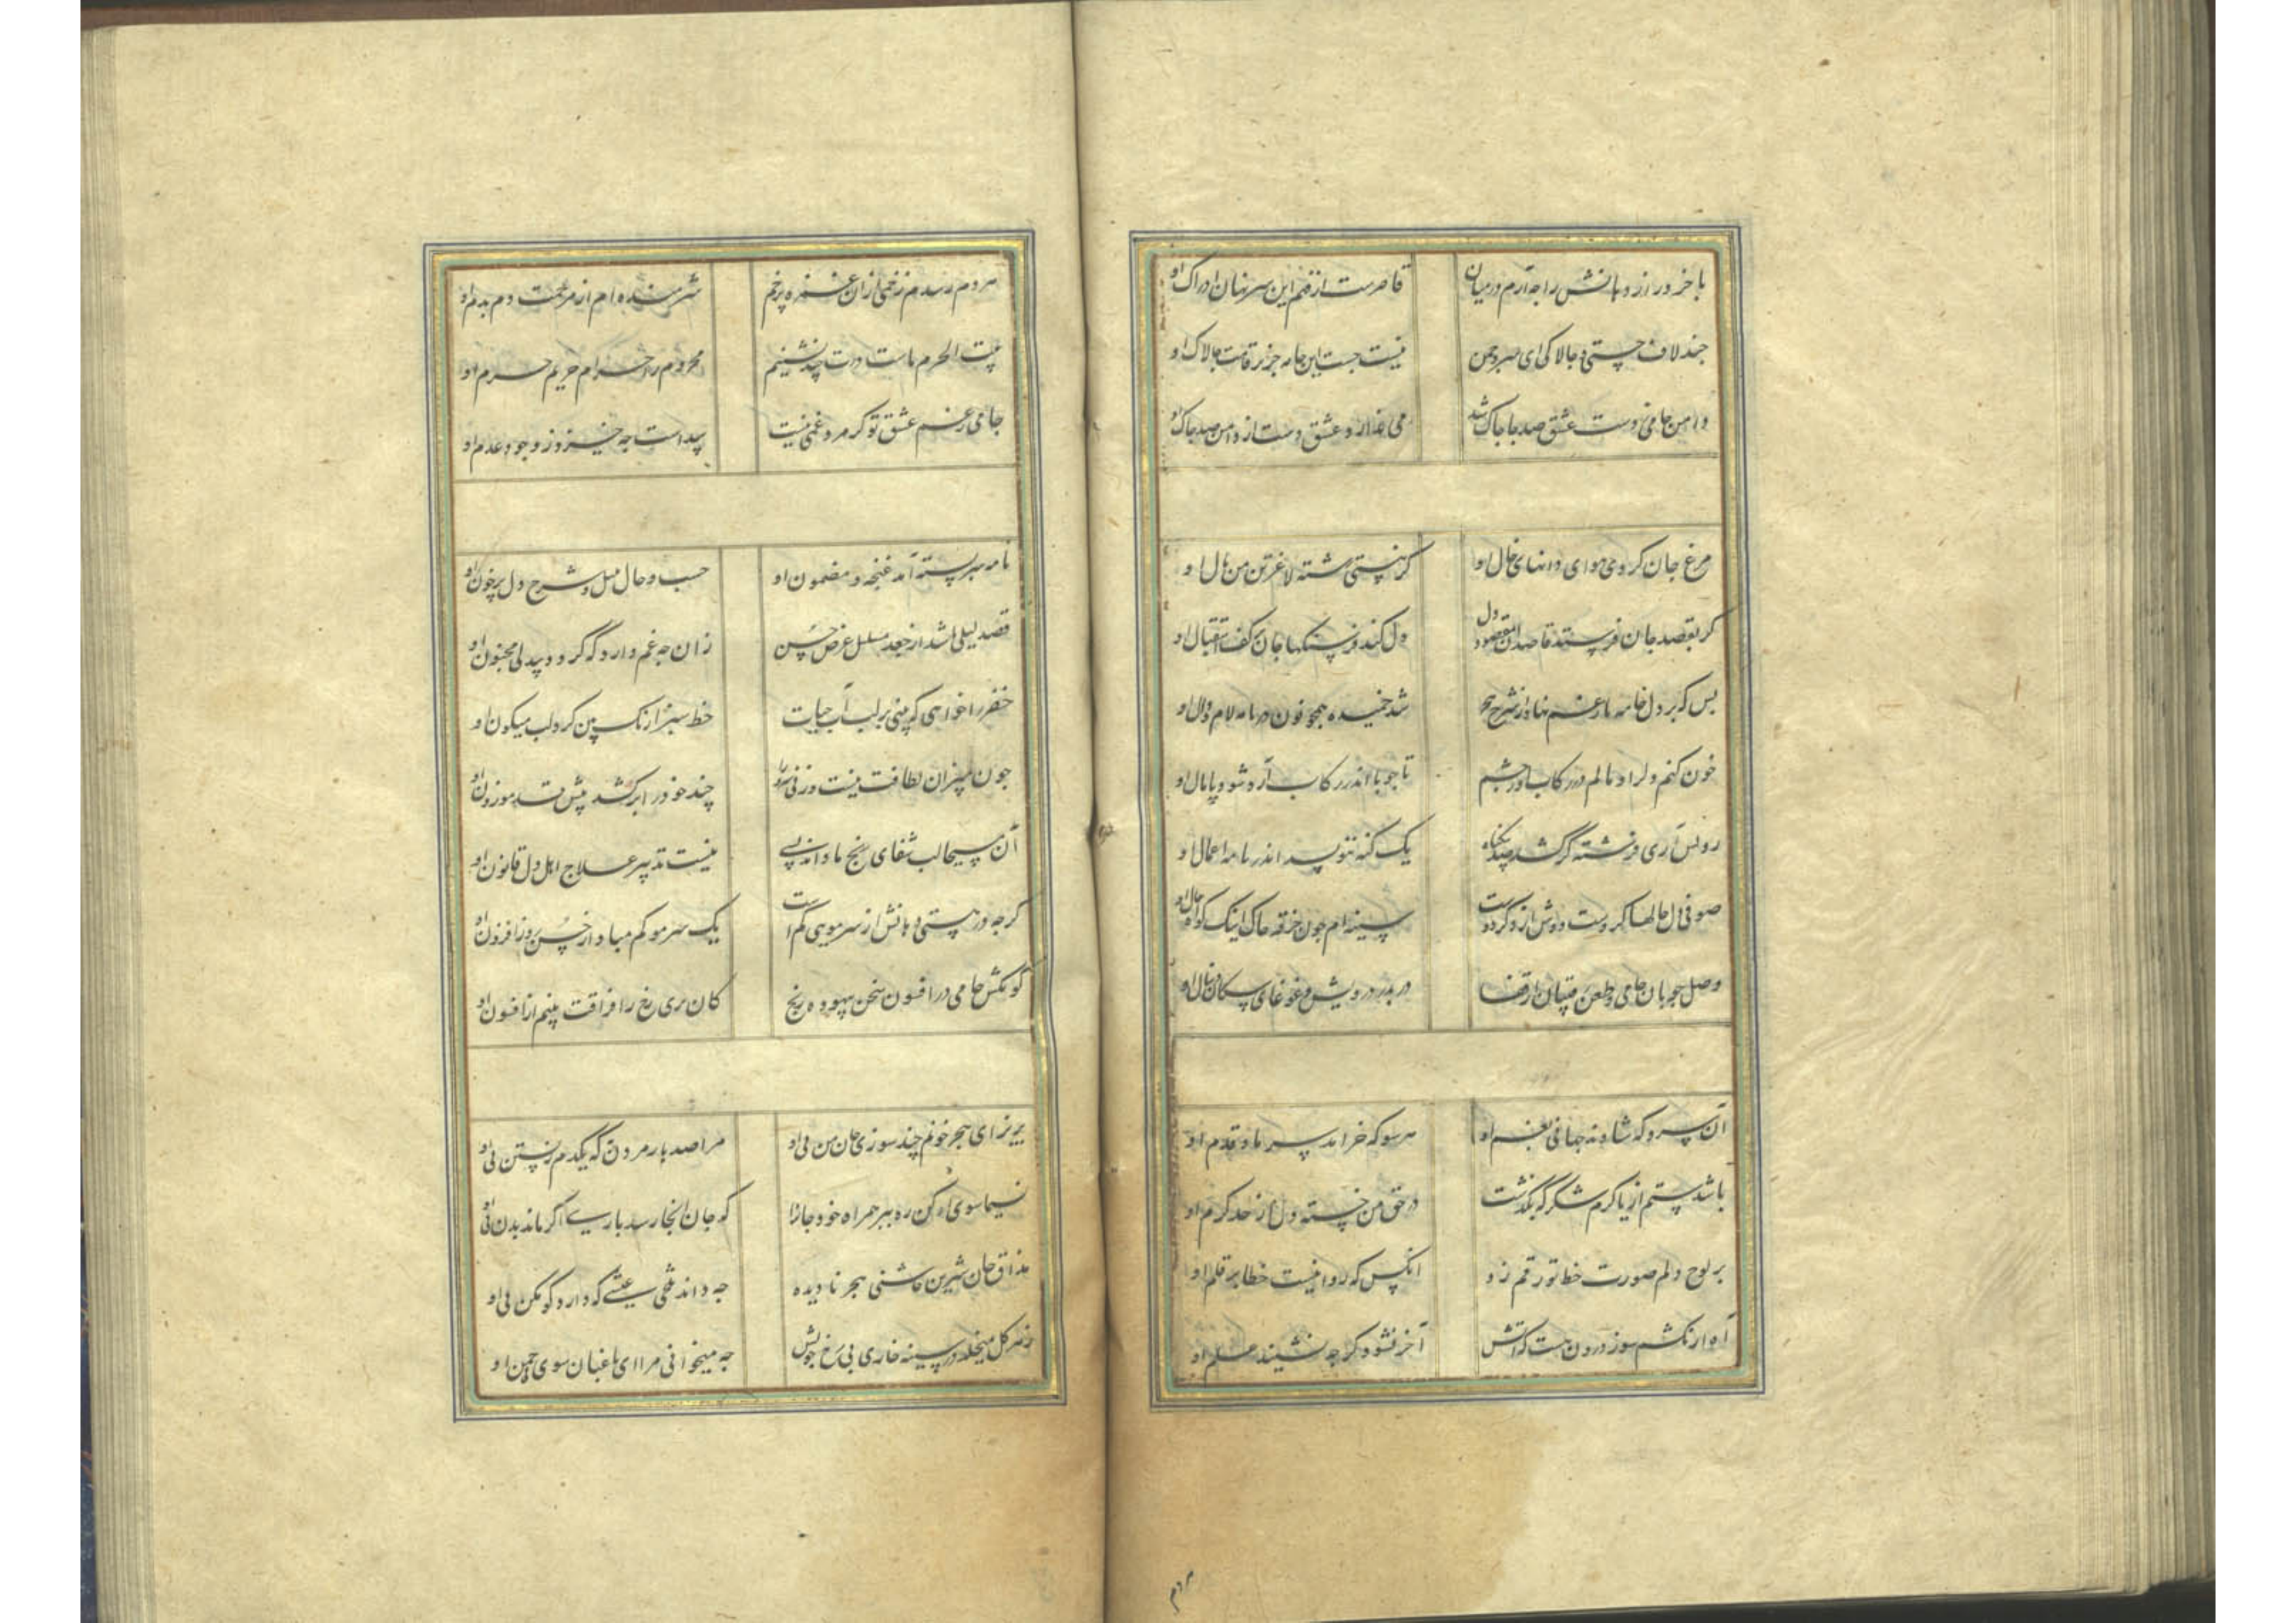 با خرد راز دهانش را چه آرم در میان
قاصرست از فهم این سر نهان ادراک او
چند لاف چستی و چالاکی ای سرو چمن
نیست چست این جامه جز بر قامت چالاک او
دامن جامی ز دست عشق صد جا چاک شد
می ندارد عشق دست از دامن صد چاک او
مرغ جان کردی هوای دانهای خال او
گر نبستی رشته لاغر تن من بال او
گر بقصد جان فرستد قاصد آن مقصود دل
دل کند فرسنگها جان بر کف استقبال او
بس که بر دل خامه بار غم نهاد از شرح هجر
شد خمیده همچو نون در نامه لام و دال او
خون کنم دلرا و مالم در رکاب او چشم
تا چو پا اندر رکاب آرد شود پامال او
یک گنه ننویسد اندر نامه اعمال او
صوفی دل حالها کردست دوش از درد دوست
سینه ام چون خرقه چاک اینک گواه حال او
وصل جویان جامی و طعن رقیبان از قفا
در بدر درویش و غوغای سگان دنبال او
آن سرو که شادند جهانی بغم او
هر سو که خرامد سر ما و قدم او
باشد ستم از یا کرم شکر که بگذشت
در حق من خسته دل از حد کرم او
بر لوح دلم صورت خط تو رقم زد
آنکس که روا نیست خطا بر قلم او
آه ار نکشم سوز درون هست که آتش
آخر نشود گر چه نشیند علم او
مردم
هر دم رسدم زخمی از آن غمزه پر خم
شرمنده ام از مرحمت دم بدم او
بیت الحرم ماست درت چند نشینیم
محروم ز احرام حریم حرم او
جامی ز غم عشق تو گر مرد غمی نیست
پیداست چه خیزد ز وجود و عدم او
نامه سر بسته آمد غنچه و مضمون او
حسب و حال بلبل و شرح دل پر خون او
قصد لیلی باشد از جعد مسلسل عرض حسن
زان چه غم دارد که گردد بیدلی مجنون او
خضر را خواهی که بینی بر لب آب حیات
خط سبز ازنک بین گرد لب میگون او
چون بمیزان لطافت نیست وزنی سرو را
چند خود را برکشد پیش قد موزون او
آن مسیحا لب شفای رنج ما داند بسی
نیست تدبیر علاج اهل دل قانون او
گر چه در هستی دهانش از سر مویی کم است
یک سر مو کم مباد از حسن روز افزون او
گو مکش جامی در افسون سخن بیهوده رنج
کان پری رخ را فراقت بینم از افسون او
بریز ای هجر خونم چند سوزی جان من بی او
مرا صد بار مردن به که یکدم زیستن بی او
نسیما سوی او کن ره ببر همراه خود جانرا
که جان آنجا رسد باری اگر ماند بدن بی او
مذاق جان شیرین چاشنی هجر نادیده
چه داند تلخی عیشی که دارد کوهکن بی او
ز هر گل میخلد در سینه خاری بی رخ خوبش
چه میخوانی مرا ای باغبان سوی چمن بی او